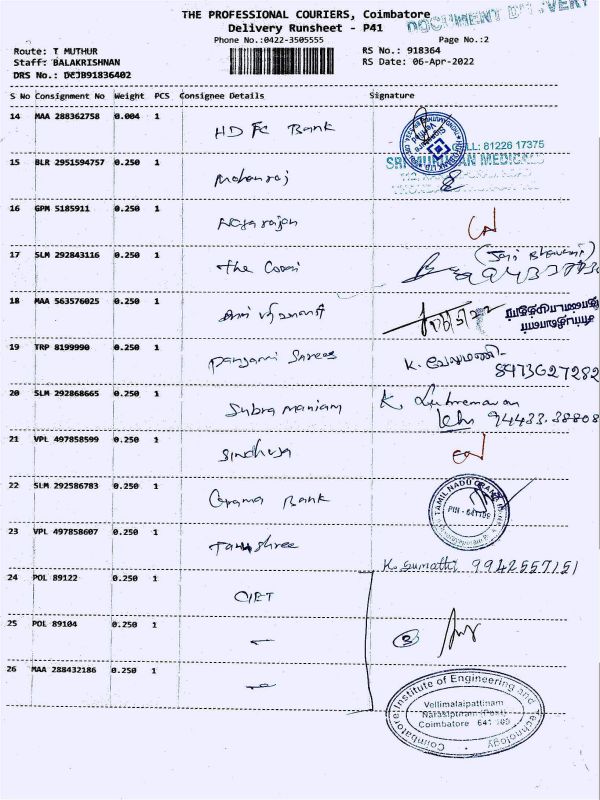 THE PROFESSIONAL COURIERS, Coimbatore
DOCUMENT DELIVERY
Delivery Runsheet - P41
Phone No.:0422-3505555
Page No.:2
Route: T MUTHUR
RS No.: 918364
Staff: BALAKRISHNAN
RS Date: 06-Apr-2022
DRS No.: DCJB91836402
S No Consignment No Weight PCS Consignee Details Signature
14 MAA 288362758 0.004 1 HDFC Bank
CELL: 81226 17375
15 BLR 2951594757 0.250 1 Mohanraj
SRI MURUGAN MEDICALS
16 GPM 5185911 0.250 1 Nagarajan
17 SLM 292843116 0.250 1 The Coori
18 MAA 563576025 0.250 1
19 TRP 8199990 0.250 1 Panjami Shrees K. வேலுமணி
8973627282
20 SLM 292868665 0.250 1 Subramaniam K.
94433.38808
21 VPL 497858599 0.250 1 Sindhuja
22 SLM 292586783 0.250 1 Grama Bank
TAMIL NADU GRAMA
PIN - 641109
23 VPL 497858607 0.250 1 Tanushree
K. Sumathi 9942557151
24 POL 89122 0.250 1 CIET
25 POL 89104 0.250 1
26 MAA 288432186 0.250 1
Coimbatore Institute of Engineering and Technology
Vellimalaipattinam
Narasipuram (Post)
Coimbatore 641 109